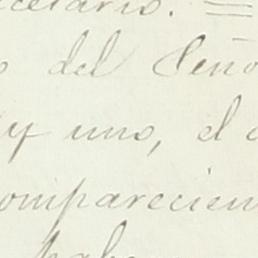 cretario.
o del Seño
y uno, el
omparecien
habe